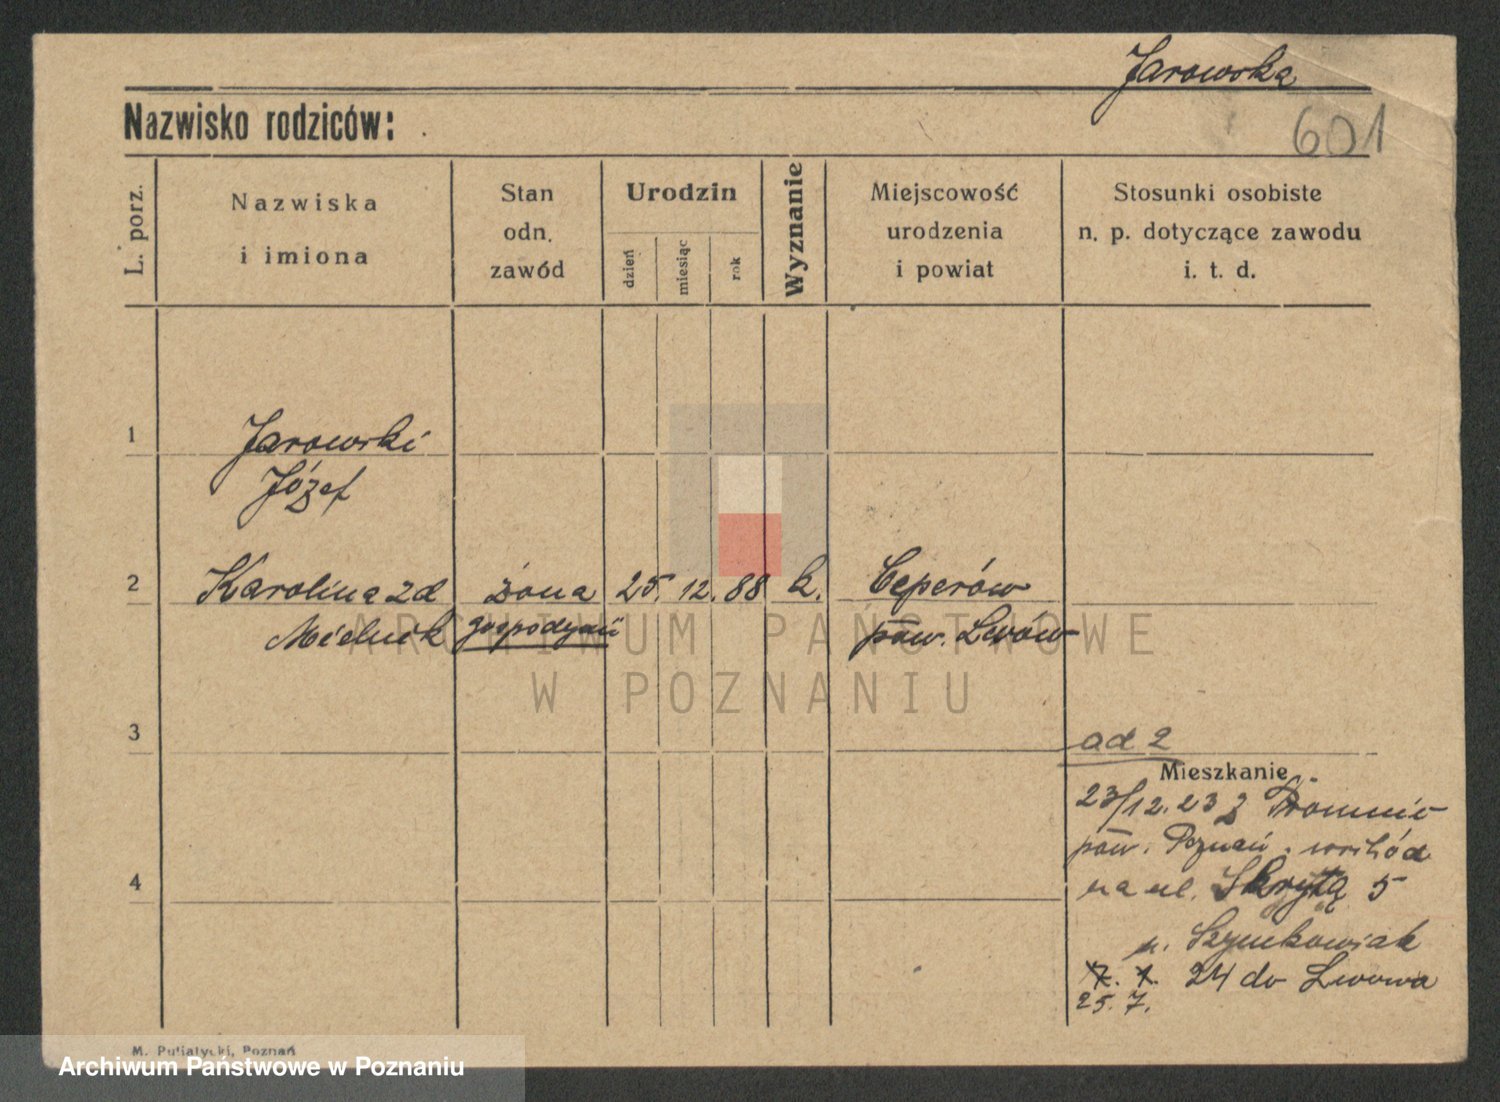 Jarowska
Nazwisko rodziców:
601
L. porz.
Nazwiska
i imiona
Stan
odn.
zawód
Urodzin
dzień
miesiąc
rok
Wyznanie
Miejscowość
urodzenia
i powiat
Stosunki osobiste
n. p. dotyczące zawodu
i. t. d.
1
Jarowski
Józef
2
Karolina zd
Mielnik
żona
gospodyni
25. 12. 88
k.
Ceperów
pow. Lwów
ARCHIWUM PAŃSTWOWE
W POZNANIU
3
ad 2
Mieszkanie
23/12. 23 z
pow. Poznań. wschód
4
na ul. Skrytą 5
u. Szymkowiak
7. 1. 24 do Lwowa
25. 7.
M. Putiatycki, Poznań
Archiwum Państwowe w Poznaniu